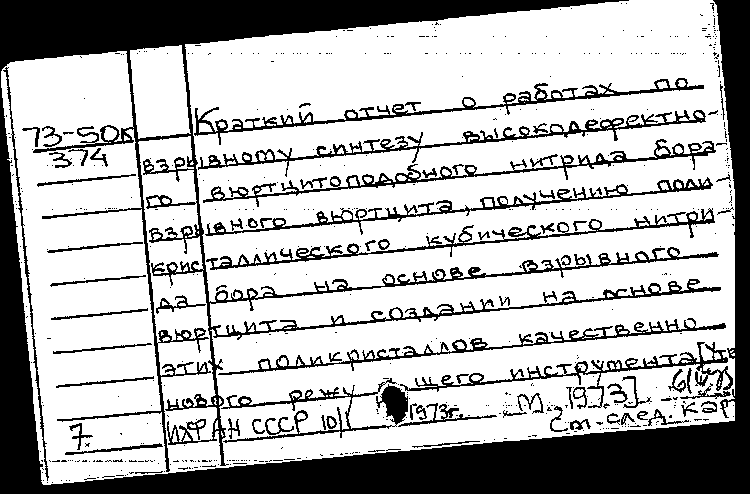 Краткий отчет о работах по
73-50к
374
взрывному синтезу высокодефектно-
го вюртцитоподобного нитрида бора-
взрывного вюртцита, получению поли-
кристаллического кубического нитри-
да бора на основе взрывного
вюртцита и создании на основе
этих поликристаллов качественно
нового режущего инструмента
7. ИХФ АН СССР 10/I 1973г. М. 1973]
См. след. кар